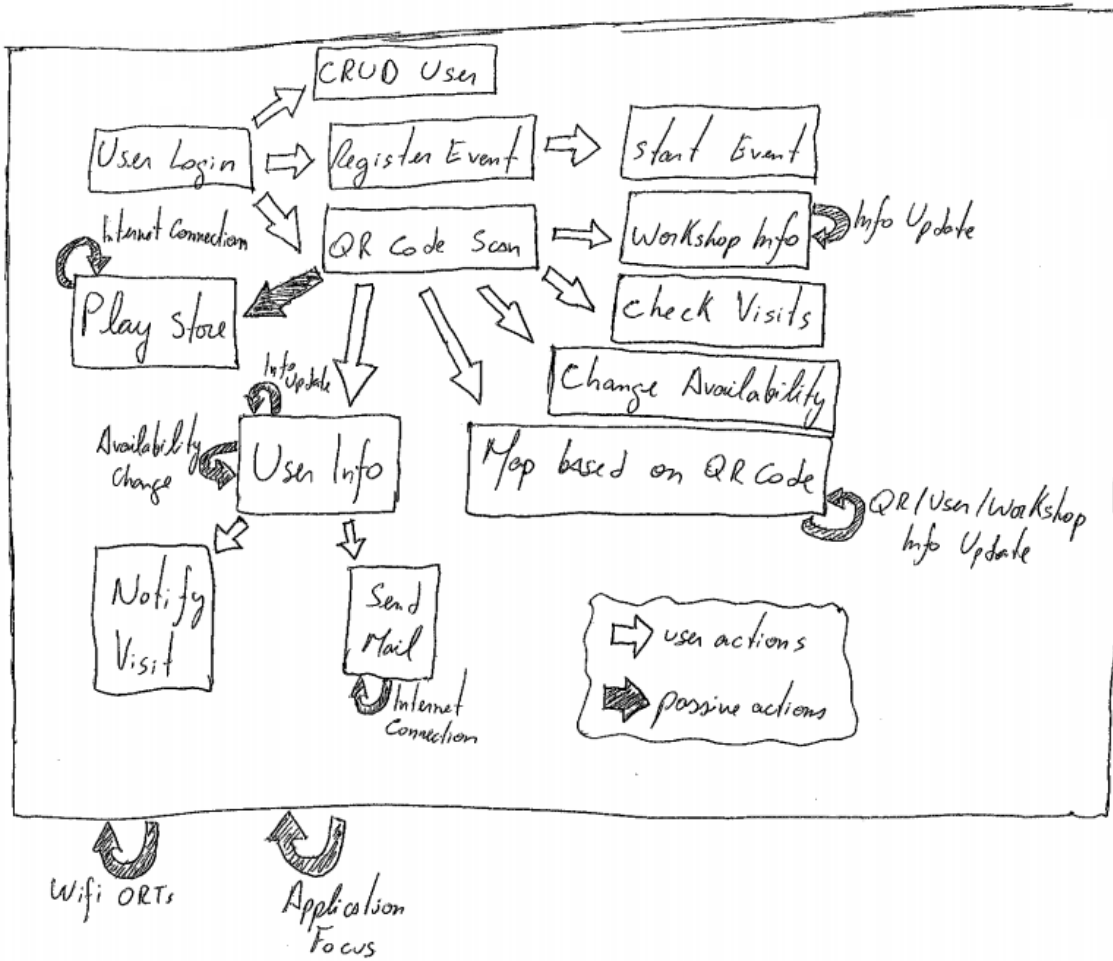 CRUD User
User Login
Register Event
Start Event
Internet Connection
QR Code Scan
Workshop Info
Info Update
Play Store
Check Visits
Info
Update
Change Availability
Availability
Change
User Info
Map based on QR Code
QR/User/Workshop
Info Update
Notify
Visit
Send
Mail
Internet
Connection
user actions
passive actions
Wifi ORTs
Application
Focus